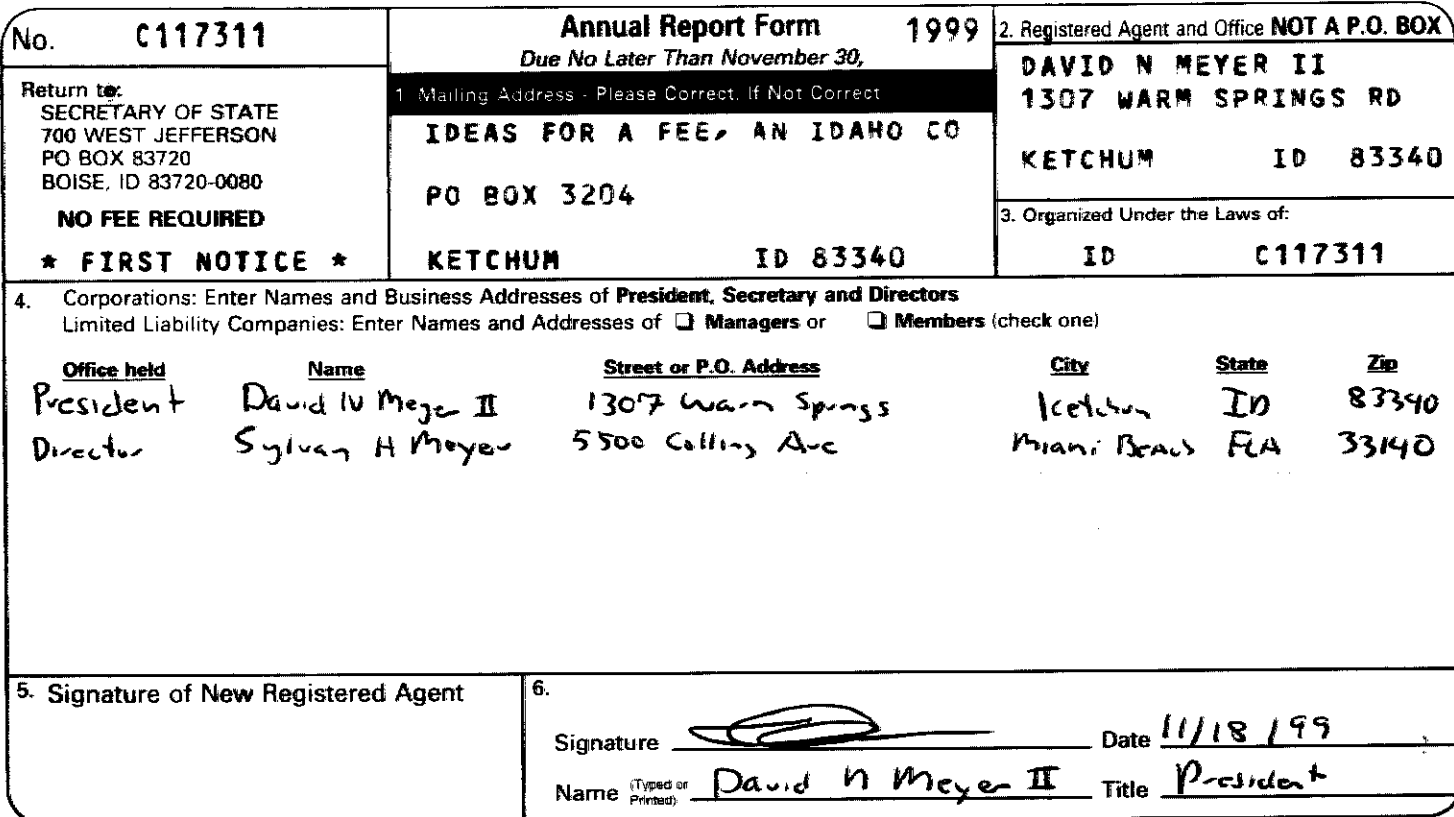 No. C117311
Return to:
SECRETARY OF STATE
700 WEST JEFFERSON
PO BOX 83720
BOISE, ID 83720-0080
NO FEE REQUIRED
* FIRST NOTICE *
Annual Report Form 1999
Due No Later Than November 30,
1 Mailing Address - Please Correct, If Not Correct
IDEAS FOR A FEE, AN IDAHO CO
PO BOX 3204
KETCHUM ID 83340
2. Registered Agent and Office NOT A P.O. BOX
DAVID N MEYER II
1307 WARM SPRINGS RD
KETCHUM ID 83340
3. Organized Under the Laws of:
ID C117311
4. Corporations: Enter Names and Business Addresses of President, Secretary and Directors
Limited Liability Companies: Enter Names and Addresses of ❑ Managers or ❑ Members (check one)
Office held Name Street or P.O. Address City State Zip
President David N Meyer II 1307 Warm Springs Ketchum ID 83340
Director Sylvan H Meyer 5500 Collins Ave Miami Beach FLA 33140
5. Signature of New Registered Agent
6.
Signature Date 11/18/99
Name (Typed or Printed) David N Meyer II Title President